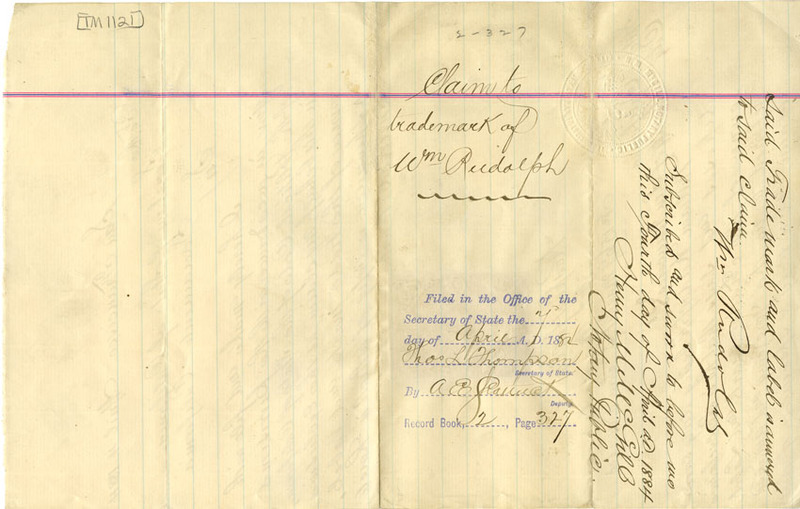 TM 1121
2-327
Claim to
trademark of
Wm Rudolph
Filed in the Office of the
Secretary of State the
day of April A. D. 188
Thos L. Thompson
Secretary of State.
By A E
Deputy.
Record Book, 2, Page 327
said Trade mark and label annexed
to said claim
Wm Rudolph
Subscribed and sworn to before me
this Fourth day of April AD. 1884
Henry
Notary Public.